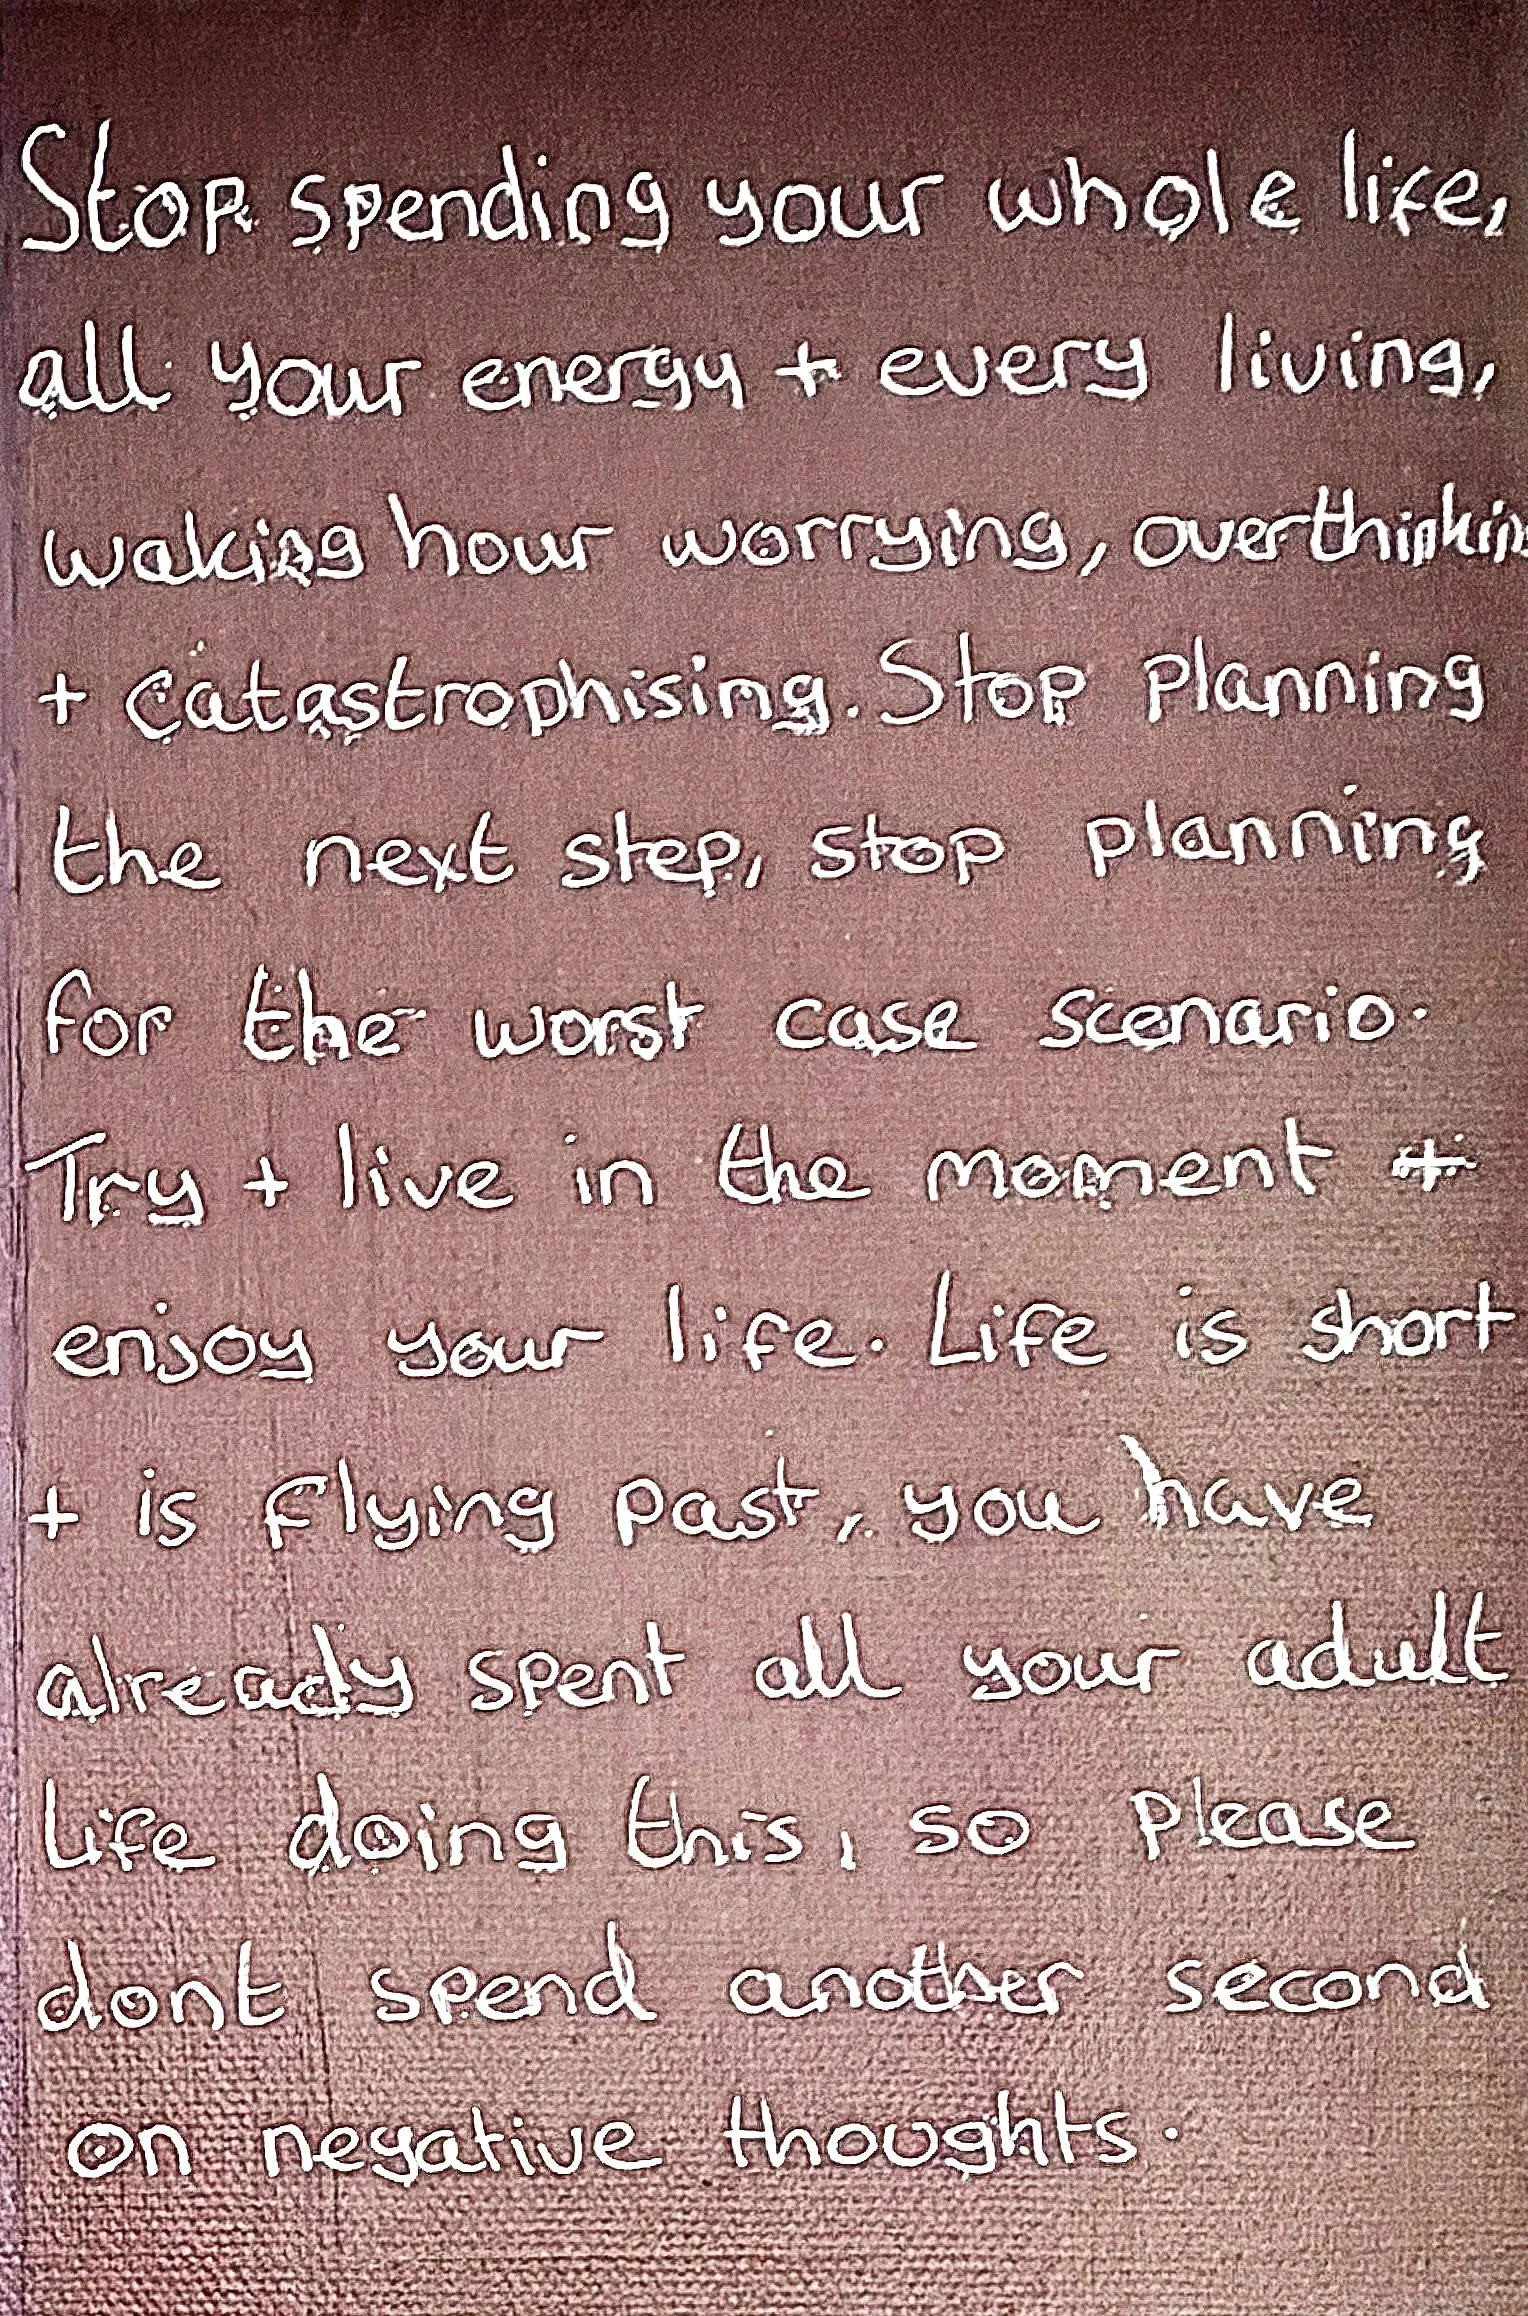 Stop spending your whole life,
all your energy + every living,
waking hour worrying, overthinking
+ catastrophising. Stop planning
the next step, stop planning
for the worst case scenario.
Try + live in the moment +
enjoy your life. Life is short
+ is flying past, you have
already spent all your adult
life doing this, so please
dont spend another second
on negative thoughts.